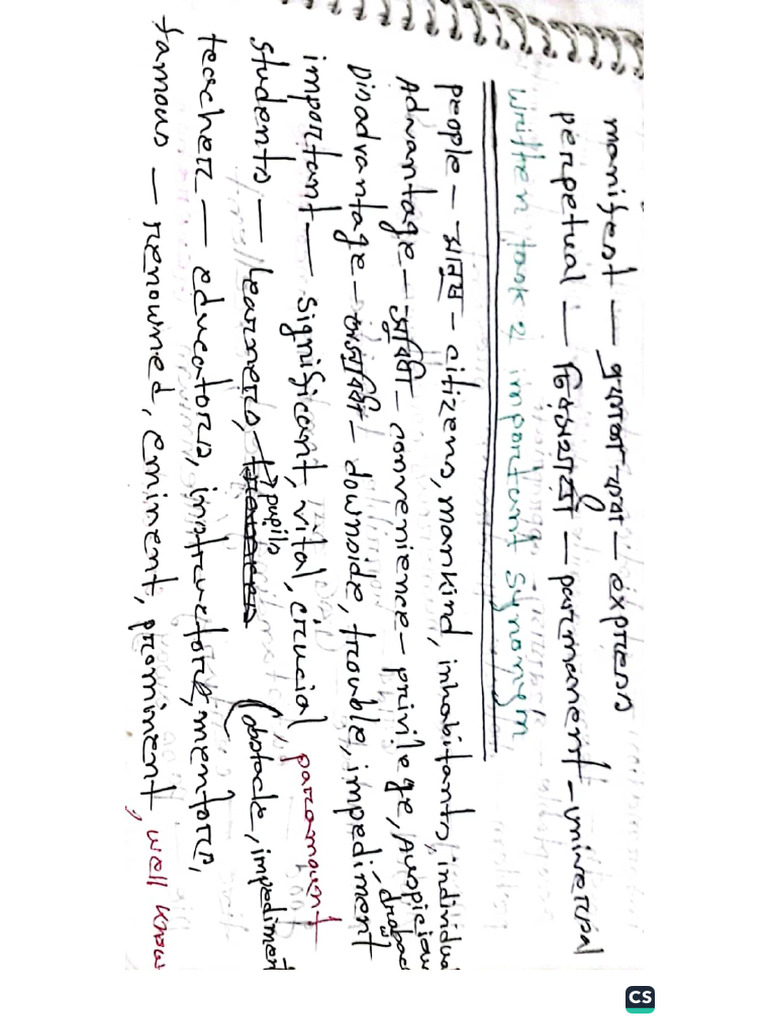 manifest — প্রকাশ করা — express
perpetual — চিরস্থায়ী — parmanent - universal
written task 2 important synonym
people — মানুষ - citizens, mankind, inhabitants, individua
Advantage — সুবিধা - convenience - privilege, Auspiciou
Disadvantage - অসুবিধা - downside, trouble, impediment, drabac
important — significant, vital, crucial, paramount
(obstacle, impedimen
students — learners, pupils
teacher — educators, instructors, mentors,
famous — renowned, eminent, prominent, well know
CS